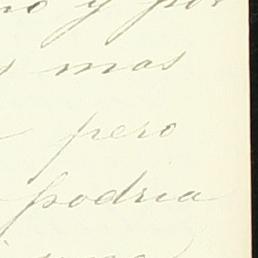 y por
mas
pero
podria